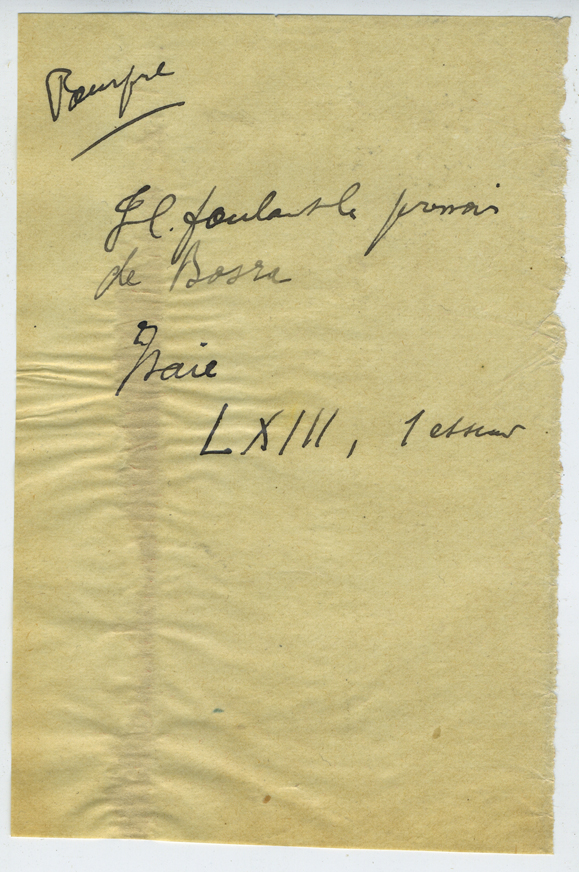 Pourpre
Jl. foulant le pressoir
de Bosra
Isaïe
LXIII, 1 et suiv